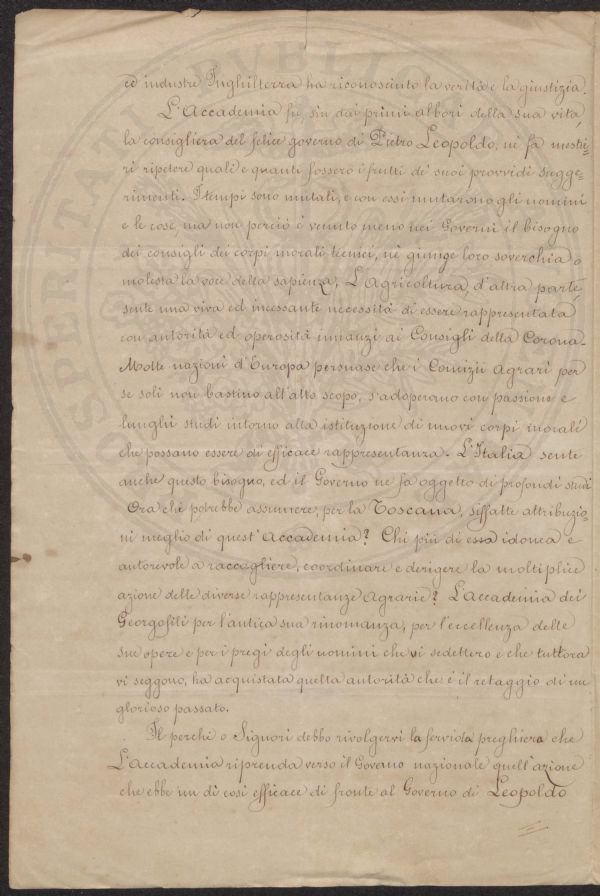 ed industre Inghilterra ha riconosciuto la verità e la giustizia.
L'Accademia fu, sin dai primi albori della sua vita
la consigliera del felice governo di Pietro Leopoldo, nè fa mestie=
ri ripetere quali e quanti fossero i frutti de' suoi provvidi sugge=
rimenti. I tempi sono mutati, e con essi mutarono gli uomini
e le cose, ma non perciò è venuto meno nei Governi il bisogno
dei consigli dei corpi morali tecnici, nè giunge loro soverchia o
molesta la voce della sapienza; L'Agricoltura d'altra parte,
sente una viva ed incessante necessità di essere rappresentata
con autorità ed operosità innanzi ai Consigli della Corona.
Molte nazioni d'Europa persuase che i Comizii Agrari per
se soli non bastino all'alto scopo, s'adoperano con passione e
lunghi studi intorno alla istituzione di nuovi corpi morali
che possano essere di efficace rappresentanza. L'Italia sente
anche questo bisogno, ed il Governo ne fa oggetto di profondi studi
Ora chi potrebbe assumere, per la Toscana, siffatte attribuzio=
ni meglio di quest'Accademia? Chi più di essa idonea e
autorevole a raccogliere, coordinare e derigere la moltiplice
azione delle diverse rappresentanze Agrarie? L'Accademia dei
Georgofili per l'antica sua rinomanza, per l'eccellenza delle
sue opere e per i pregi degli uomini che vi sedettero e che tuttora
vi seggono, ha acquistata quella autorità che è il retaggio di un
glorioso passato.
Il perchè o Signori debbo rivolgervi la fervida preghiera che
L'Accademia riprenda verso il Governo nazionale quell'azione
che ebbe un dì così efficace di fronte al Governo di Leopoldo
PROSPERITATI PUBLICAE